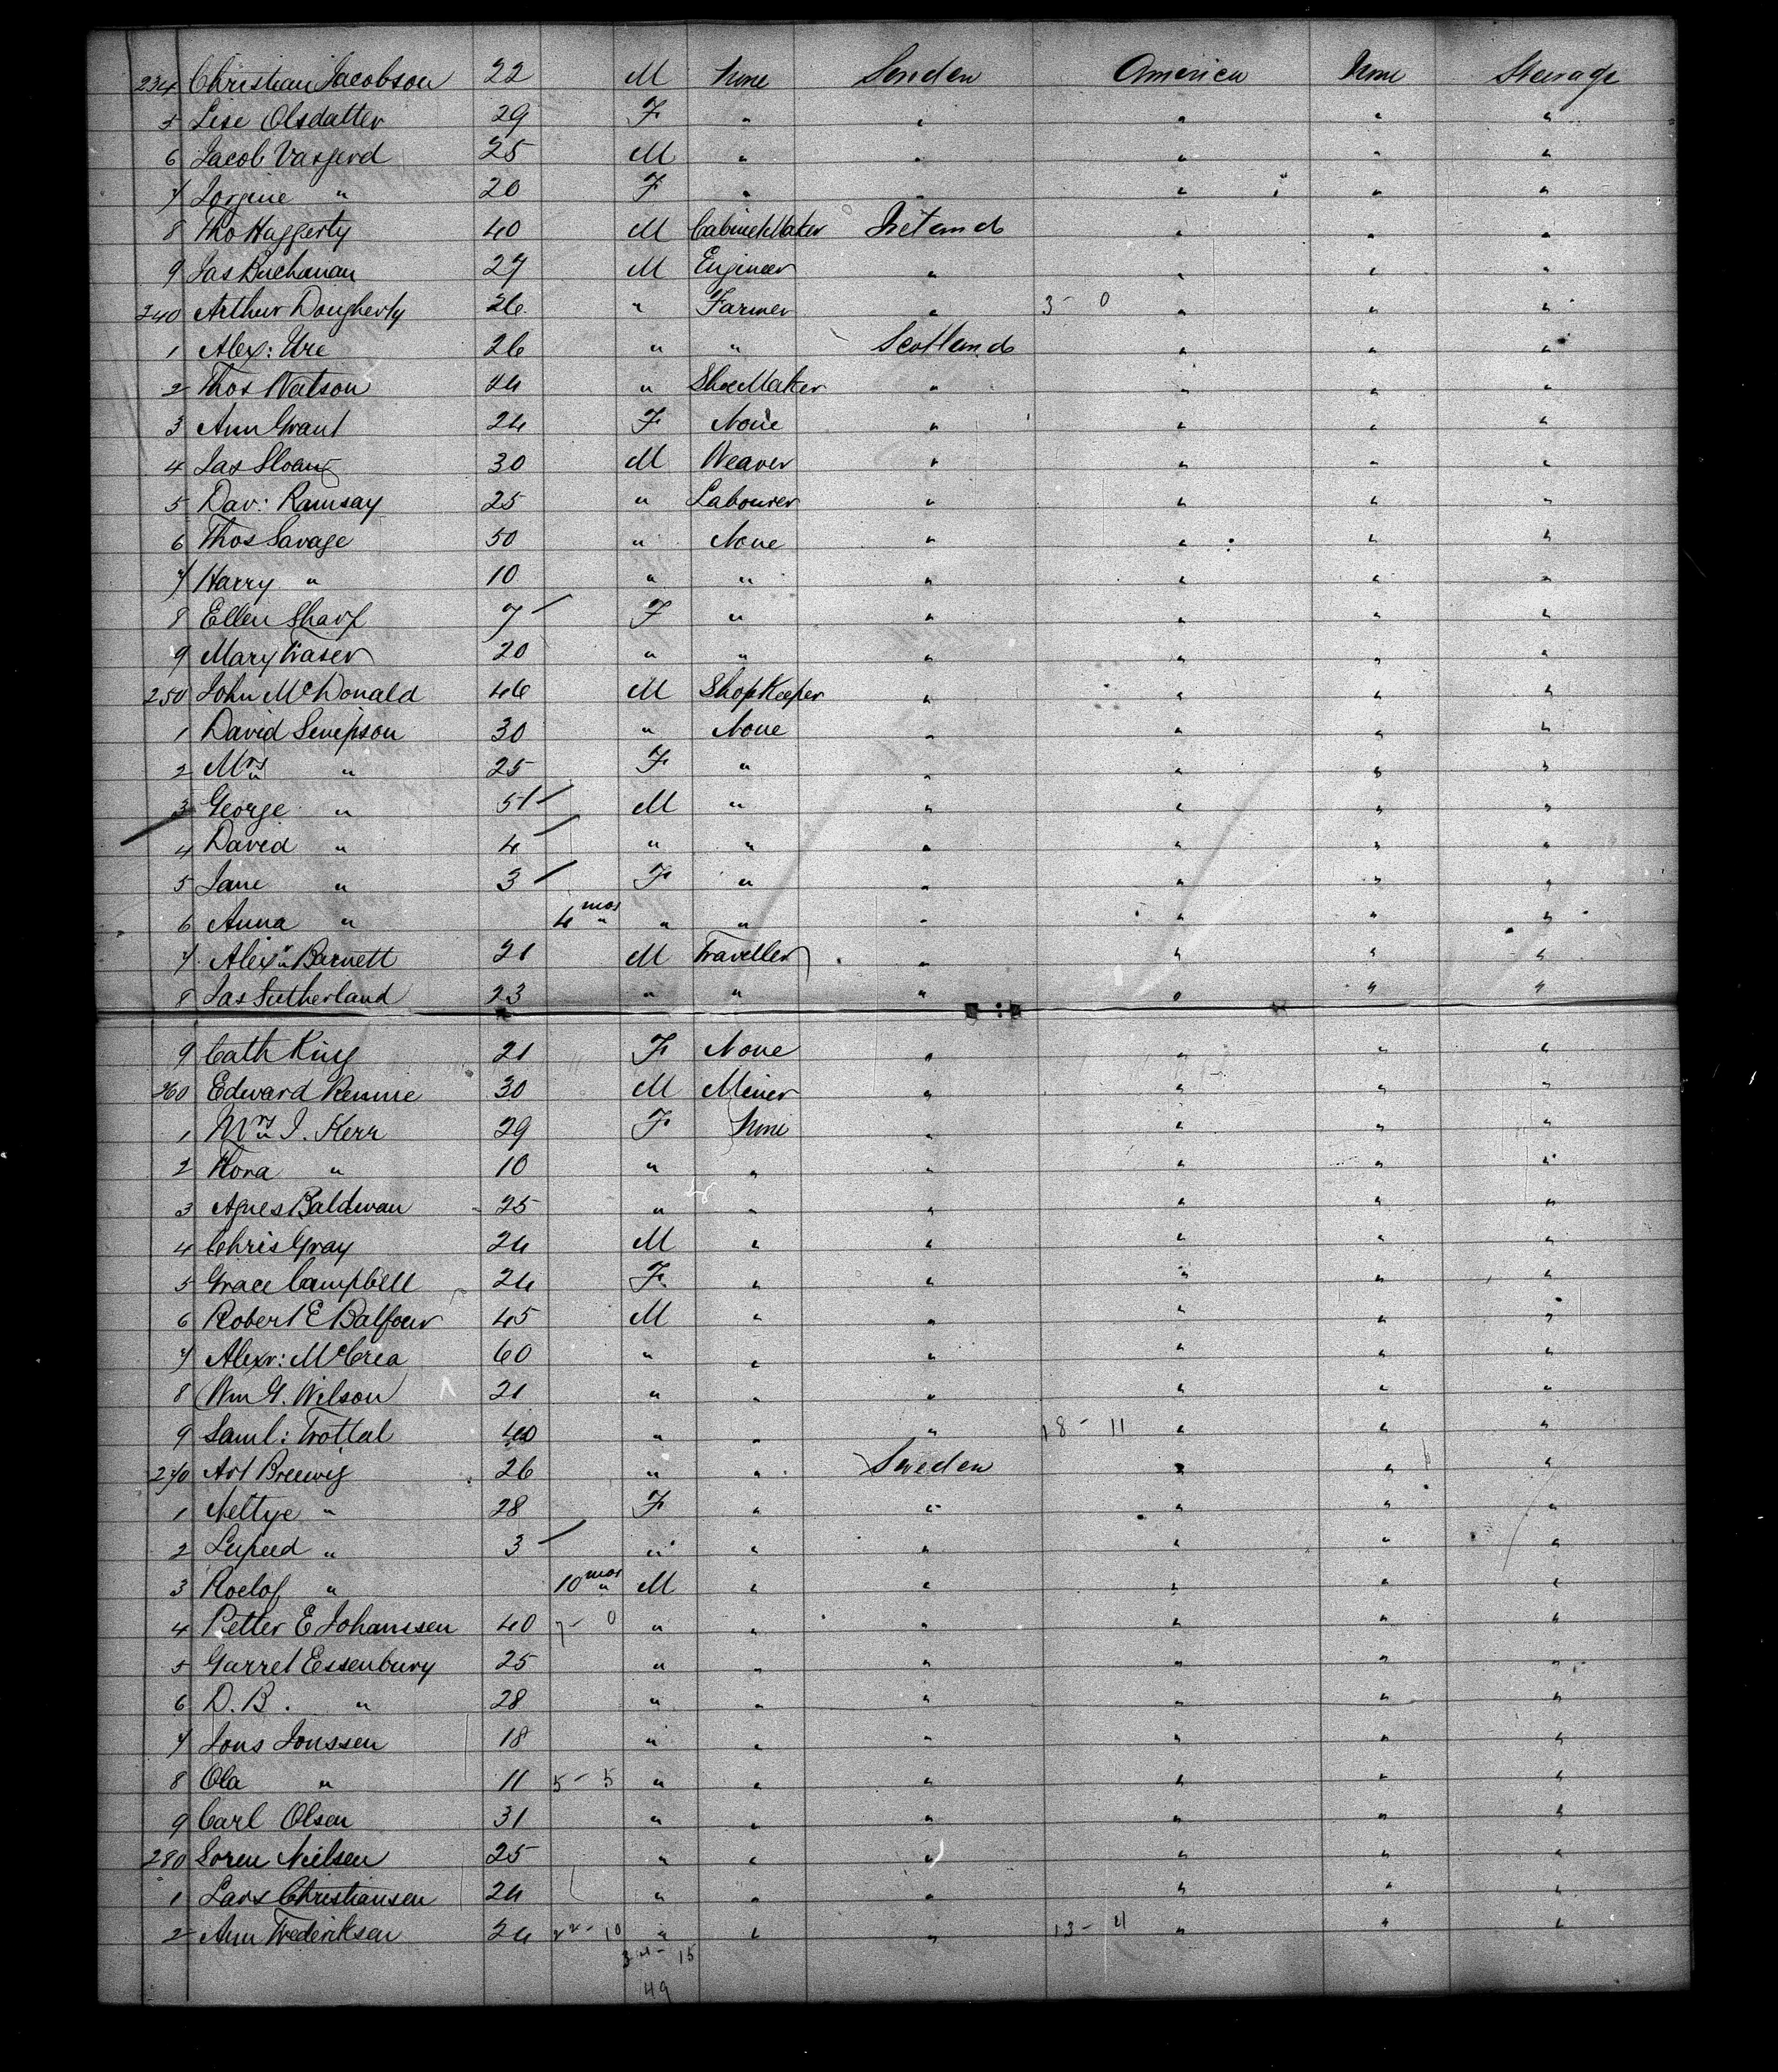 234 Christian Jacobson 22 M None Sweden America None Steerage
5 Lise Olsdatter 29 F " " " " "
6 Jacob Vasgerd 25 M " " " " "
7 Jorgine " 20 F " " " " "
8 Tho Haggerty 40 M CabinetMaker Ireland " " "
9 Jas Buchanan 27 M Engineer " " " "
240 Arthur Dougherty 26 " Farmer " 3 - 0 " " "
1 Alex: Ure 26 " " Scotland " " "
2 Thos Watson 24 " ShoeMaker " " " "
3 Ann Grant 24 F None " " " "
4 Jas Sloan 30 M Weaver " " " "
5 Dav: Ramsay 25 " Labourer " " " "
6 Thos Savage 50 " None " " " "
7 Harry " 10 " " " " " "
8 Ellen Sharp 7 F " " " " "
9 Mary Fraser 20 " " " " " "
250 John McDonald 46 M ShopKeeper " " " "
1 David Simpson 30 " None " " " "
2 Mrs " 25 F " " " " "
3 George " 5 M " " " " "
4 David " 4 " " " " " "
5 Jane " 3 F " " " " "
6 Anna " 4 mos " " " " " "
7 Alexr Barnett 21 M Traveller " " " "
8 Jas Sutherland 23 " " " " " "
9 Cath King 21 F None " " " "
260 Edward Rennie 30 M Miner " " " "
1 Mrs J. Kerr 29 F None " " " "
2 Flora " 10 " " " " " "
3 Agnes Baldwan 25 " " " " " "
4 Chris Gray 24 M " " " " "
5 Grace Campbell 24 F " " " " "
6 Robert E Balfour 45 M " " " " "
7 Alexr: McCrea 60 " " " " " "
8 Wm G. Wilson 21 " " " " " "
9 Saml: Trottal 40 " " " 18 - 11 " " "
270 Art Breewig 26 " " Sweden " " "
1 Neltye " 28 F " " " " "
2 " 3 " " " " " "
3 Roelof " 10 mos M " " " " "
4 Petter E Johanssen 40 7 - 0 " " " " " "
5 Garret Essenbury 25 " " " " " "
6 D. B. " 28 " " " " " "
7 Jons Jonssen 18 " " " " " "
8 Ola " 11 5 - 5 " " " " " "
9 Carl Olsen 31 " " " " " "
280 Soren Nielsen 25 " " " " " "
1 Lars Christiansen 24 " " " " " "
2 Ann Frederiksen 24 22 - 10 " " " 13 - 4 " " "
34 - 15
49